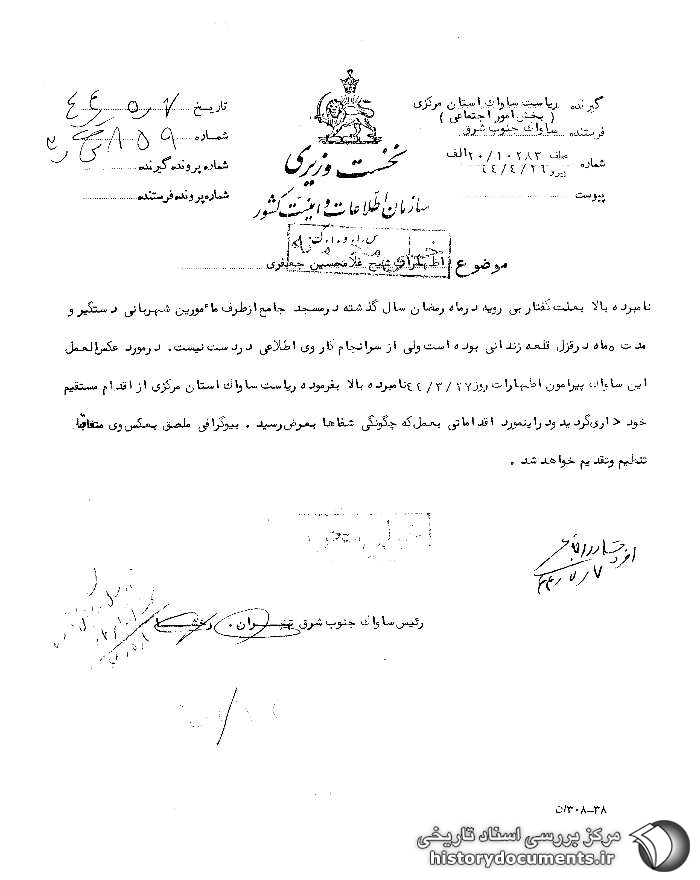 گیرنده ریاست ساواك استان مرکزی
( بخش امور اجتماعی )
فرستنده ساواك جنوب شرق
شماره ۲۰/۱۰۲۸۳ الف
پیوست
نخست وزیری
سازمان اطلاعات و امنیت کشور
تاریخ
شماره ۸۵۹
شماره پرونده گیرنده
شماره پرونده فرستنده
موضوع اظهارات شیخ غلامحسین جعفری
نامبرده بالا بعلت گفتار بی رویه درماه رمضان سال گذشته درمسجد جامع ازطرف مأمورین شهربانی دستگیر و
مدت ۵ماه درقزل قلعه زندانی بوده است ولی از سرانجام کار وی اطلاعی دردست نیست. درمورد عکس‌العمل
این ساواك پیرامون اظهارات روز ۴۴/۳/۲۷ نامبرده بالا بفرموده ریاست ساواك استان مرکزی از اقدام مستقیم
خود داری گردید ودراینمورد اقداماتی بعمل که چگونگی شفاها بعرض رسید . بیوگرافی ملصق بعکس وی متعاقباً
تنظیم وتقدیم خواهد شد .
رئیس ساواك جنوب شرق تهران .
۳۸-۳۰۸/ن
مرکز بررسی اسناد تاریخی
historydocuments.ir